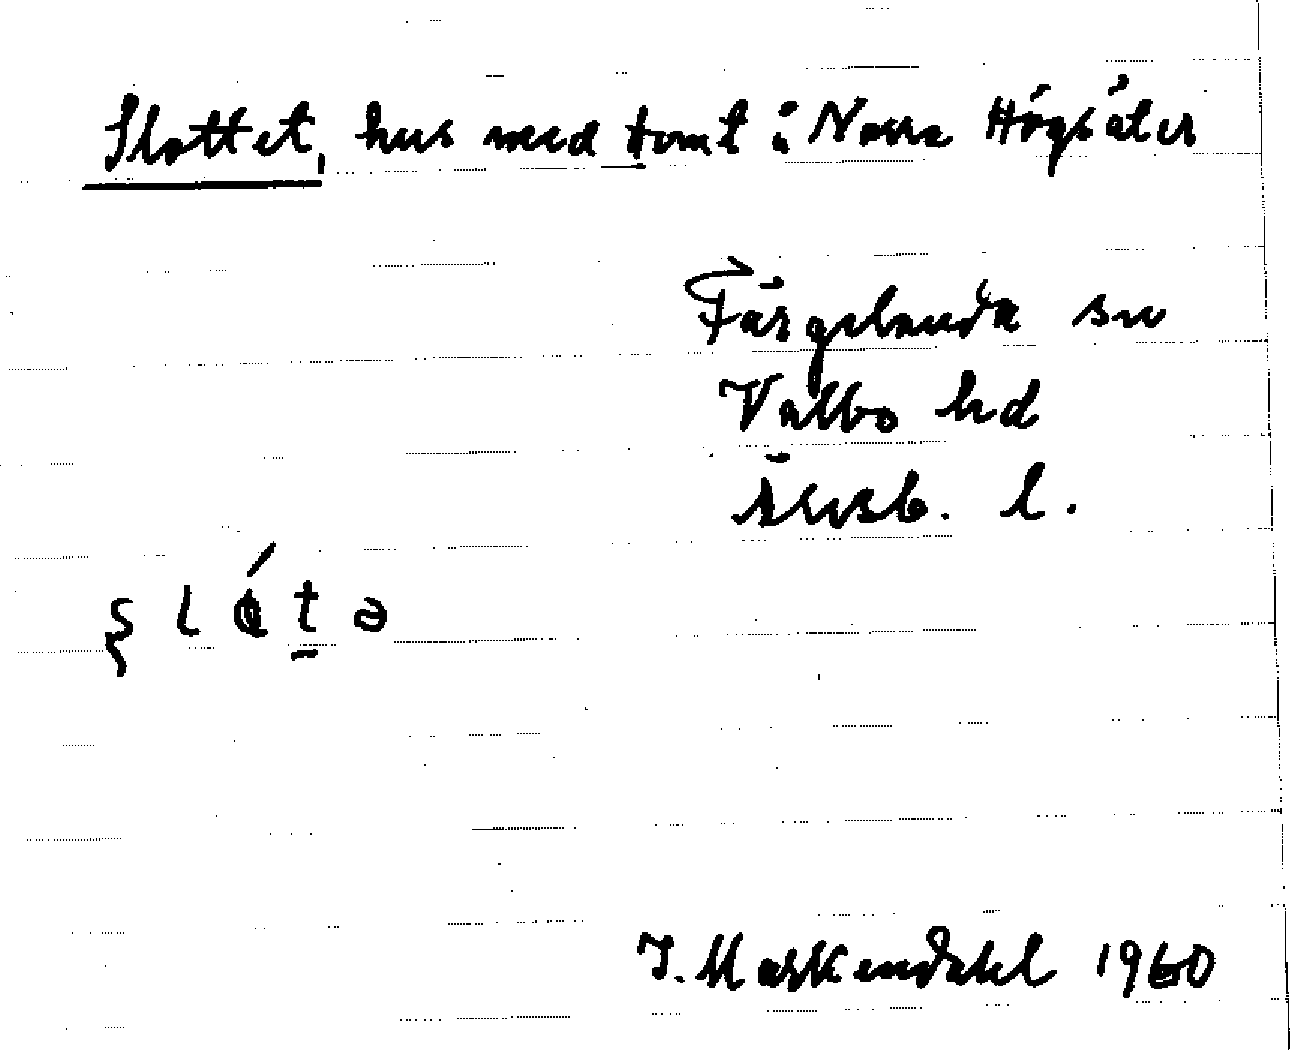 Slottet, hus med tomt i Norra Högsäter
Färgelanda sn
Valbo hd
Älvsb. l.
ş l ó t ə
I. Markendahl 1960